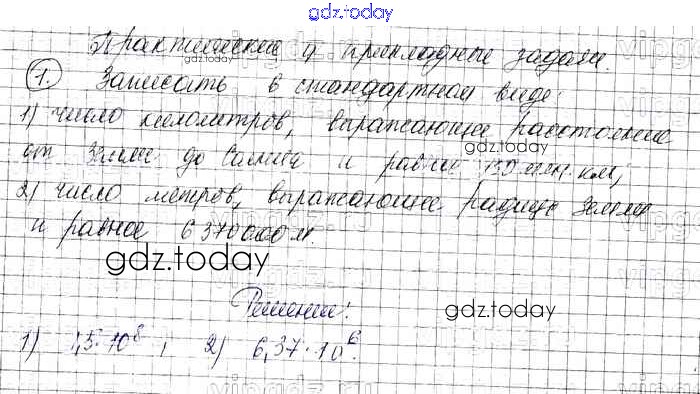 gdz.today
Практические и прикладные задачи.
1. Записать в стандартном виде:
1) число километров, выражающее расстояние
от Земли до Солнца и равное 150 млн. км;
2) число метров, выражающее радиус Земли
и равное 6 370 000 м.
gdz.today
Решение:
gdz.today
1) 1,5·10⁸; 2) 6,37·10⁶.